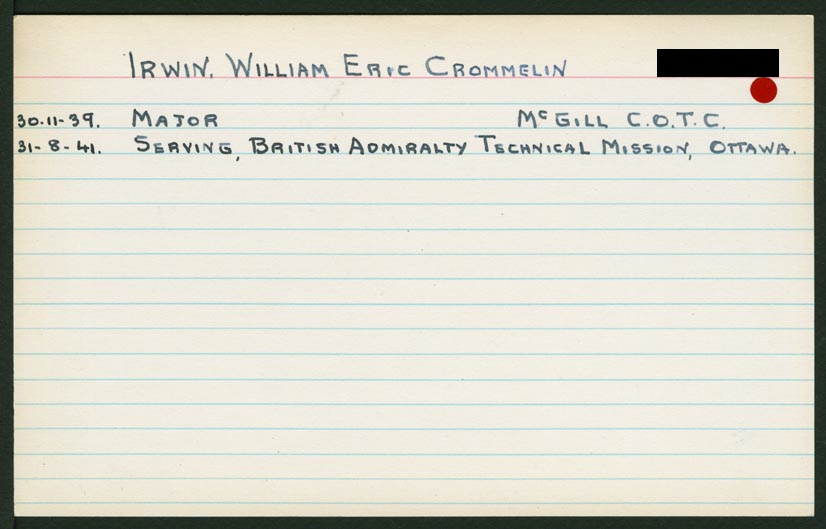 IRWIN, WILLIAM ERIC CROMMELIN
30-11-39. MAJOR McGILL C.O.T.C.
31-8-41. SERVING, BRITISH ADMIRALTY TECHNICAL MISSION, OTTAWA.